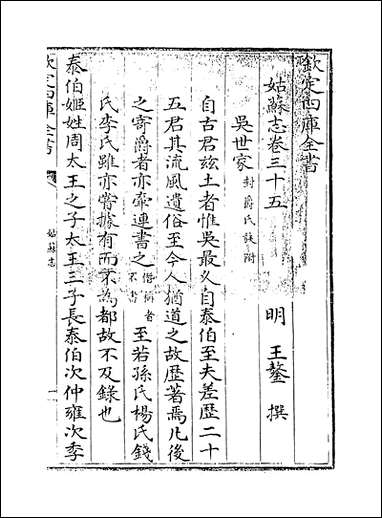 欽定四庫全書
姑蘇志卷三十五
明 王鏊 撰
吳世家 封爵氏族附
自古君玆土者惟吳最乆自泰伯至夫差歴二十
五君其流風遺俗至今人猶道之故歴著焉凡後
之寄爵者亦牽連書之 僭竊者不書 至若孫氏楊氏錢
氏李氏雖亦嘗據有而不為都故不及錄也
泰伯姬姓周太王之子太王三子長泰伯次仲雍次季
欽定四庫全書
姑蘇志
一